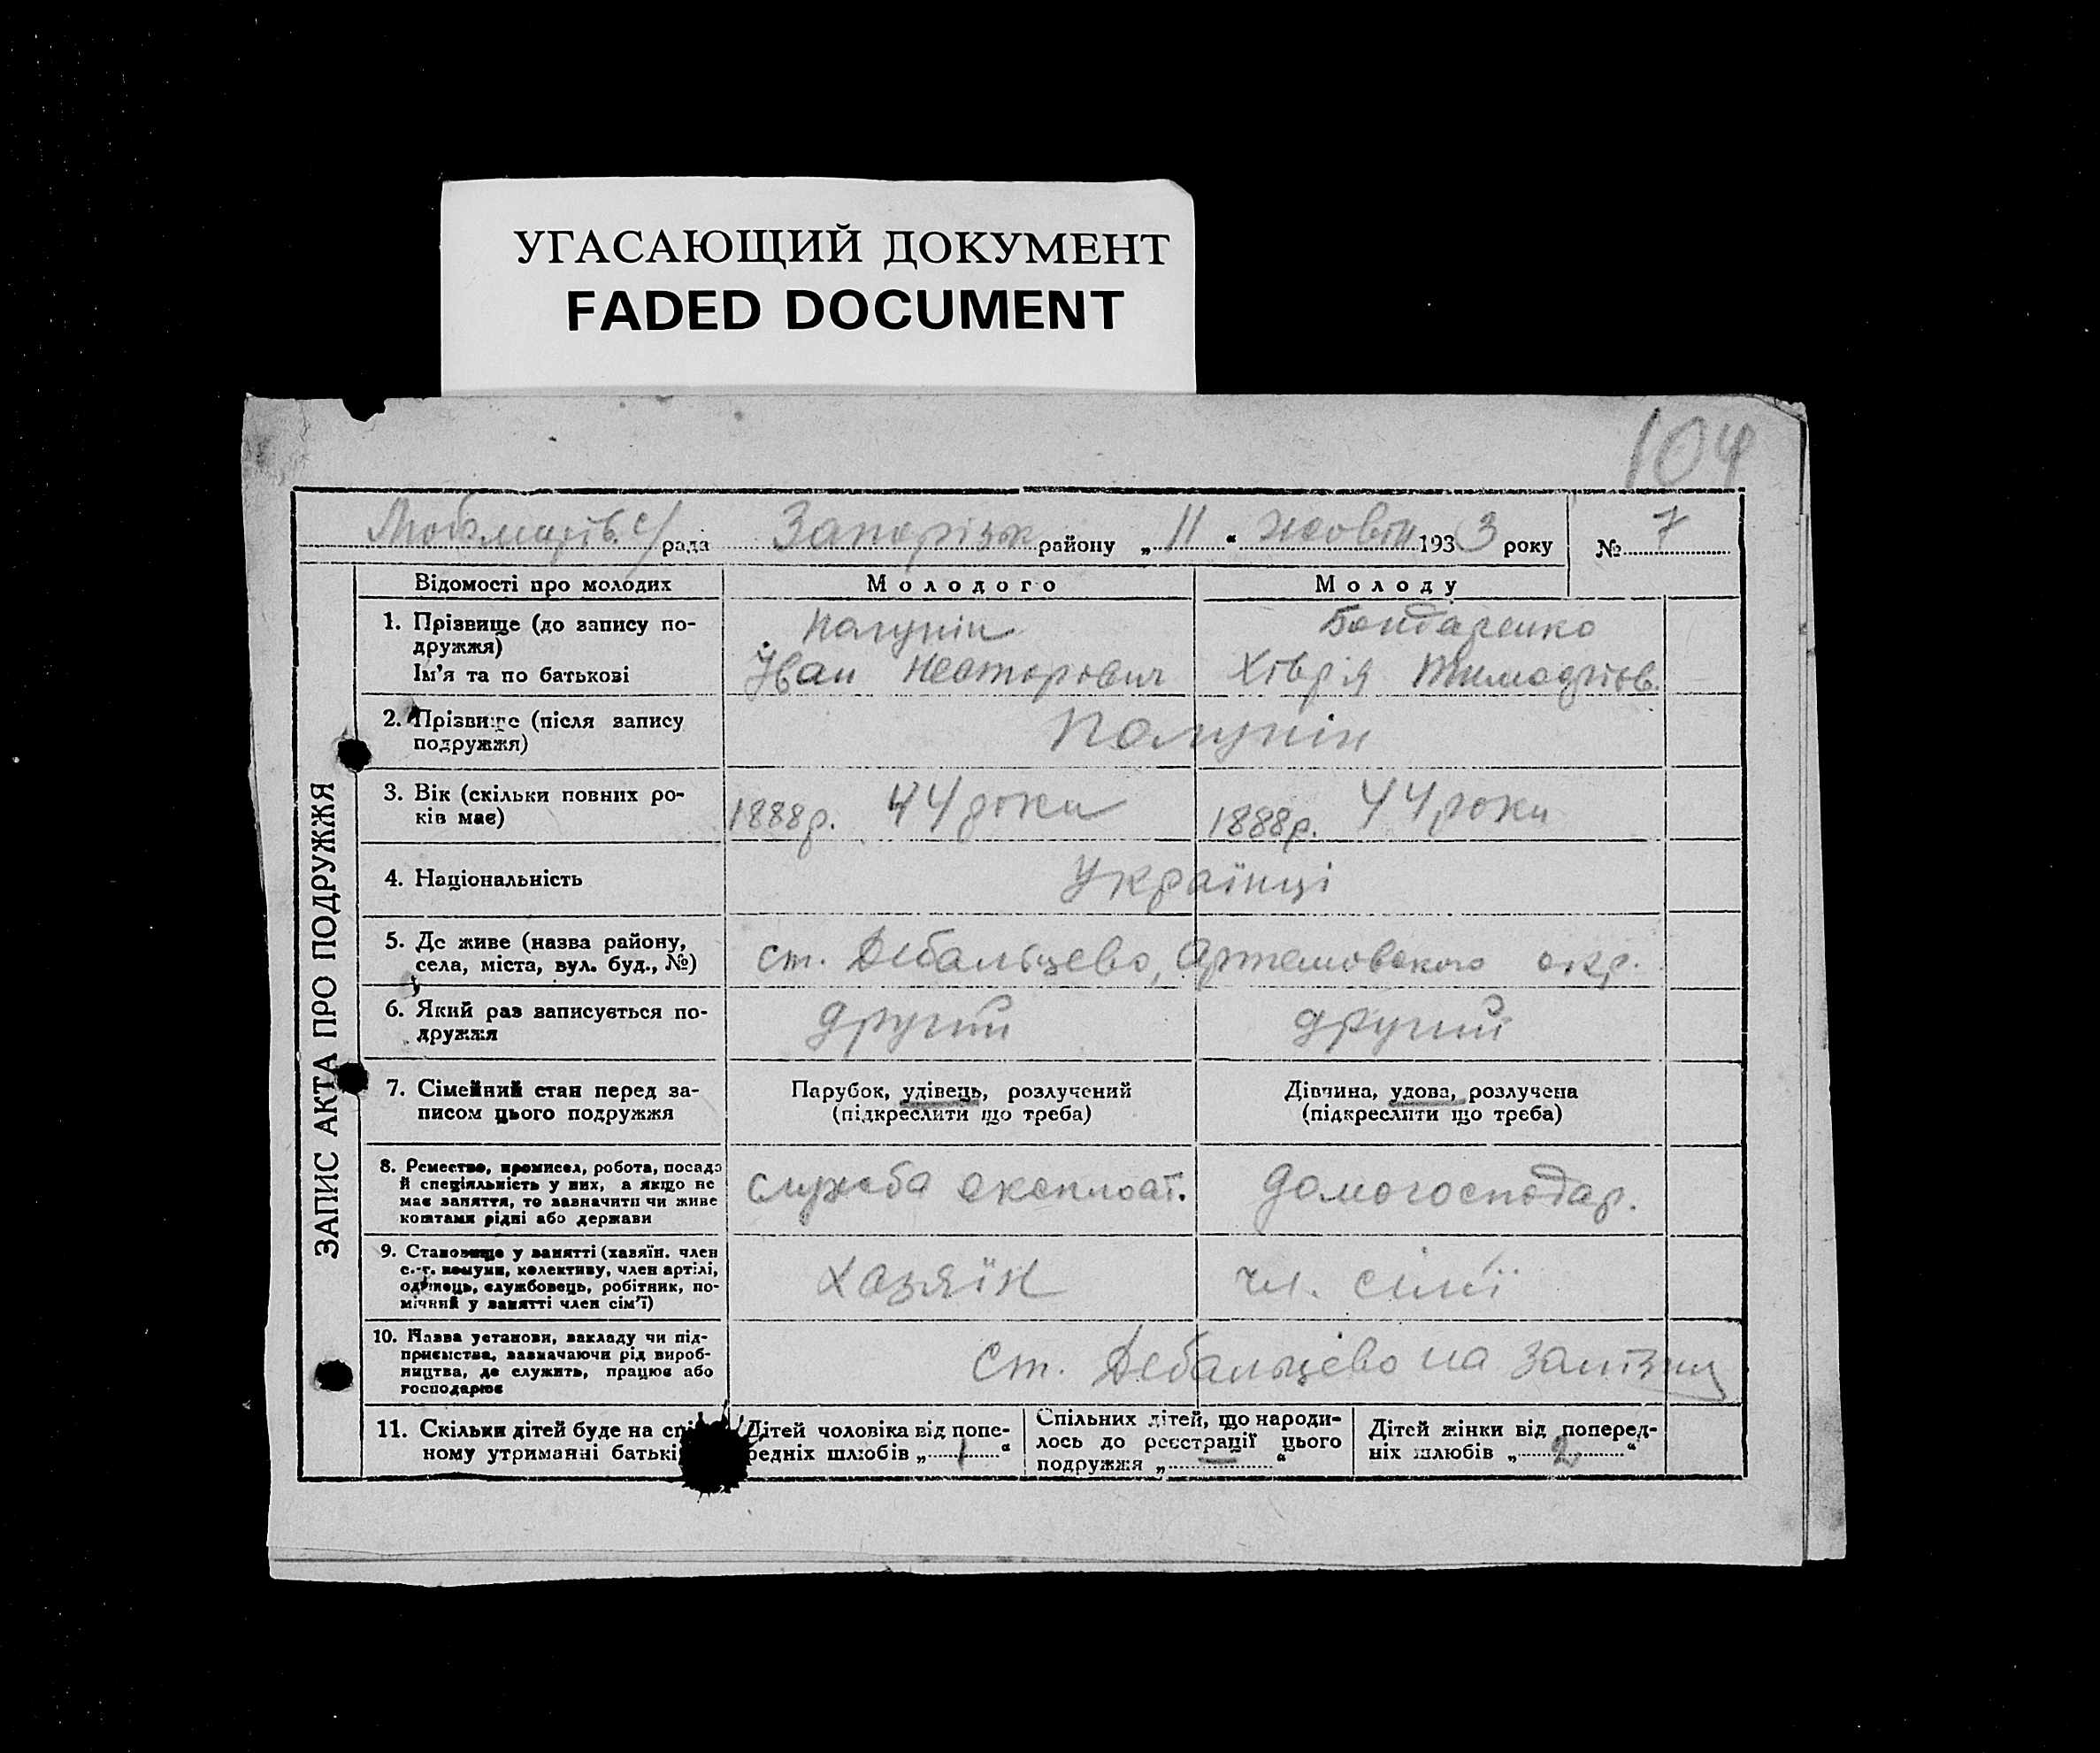 УГАСАЮЩИЙ ДОКУМЕНТ
FADED DOCUMENT
104
с/рада Запорізьк району „ 11 “ жовтн 1933 року № 7
ЗАПИС АКТА ПРО ПОДРУЖЖЯ
Відомості про молодих
Молодого
Молоду
1. Прізвище (до запису по-
дружжя)
Ім'я та по батькові
Полупін
Іван Несторович
Бондаренко
Хівря Тимофіїв.
2. Прізвище (після запису
подружжя)
Полупін
3. Вік (скільки повних ро-
ків має)
1888р. 44 роки
1888р. 44 роки
4. Національність
Українці
5. Де живе (назва району,
села, міста, вул. буд., №)
ст. Дебальцево, Артемовского окр.
6. Який раз записується по-
дружжя
другий
другий
7. Сімейний стан перед за-
писом цього подружжя
Парубок, удівець, розлучений
(підкреслити що треба)
Дівчина, удова, розлучена
(підкреслити що треба)
8. Ремество, промисел, робота, посада
й спеціяльність у них, а якщо не
має заняття, то зазначити чи живе
коштами рідні або держави
служба експлоат.
домогосподар.
9. Становище у занятті (хазяїн. член
с.-г. комуни, колективу, член артілі,
одинець, службовець, робітник, по-
мічний у занятті член сім'ї)
хазяїн
чл. сімї
10. Назва установи, закладу чи під-
приємства, зазначаючи рід вироб-
ництва, де служить, працює або
господарює
Ст. Дебальцево на залізниц
11. Скільки дітей буде на сп
ному утриманні батькі
Дітей чоловіка від попе-
редніх шлюбів „ 1 “
Спільних дітей, що народи-
лось до реєстрації цього
подружжя „ — “
Дітей жінки від поперед-
ніх шлюбів „ 2 “